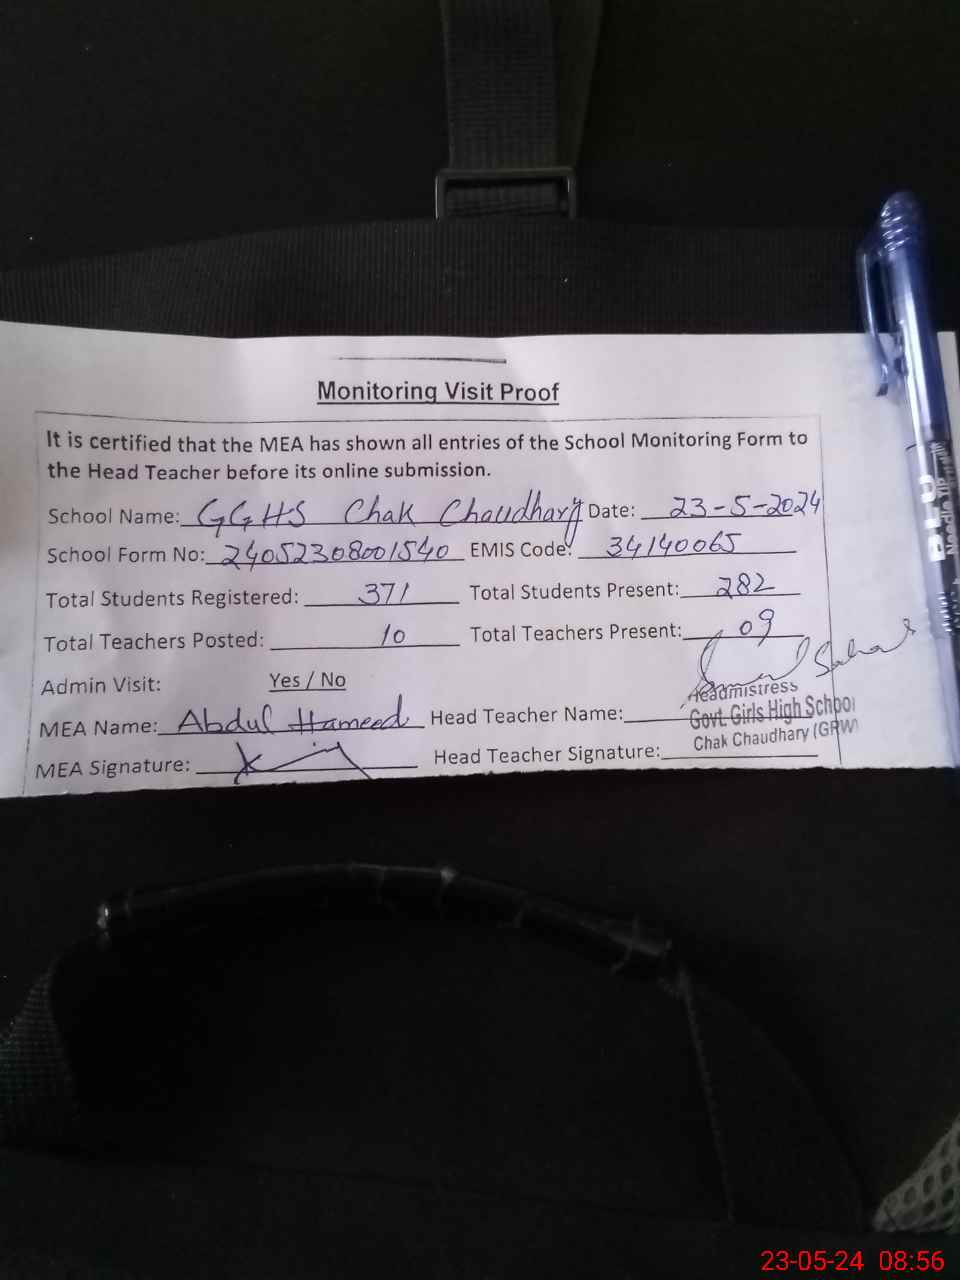 Monitoring Visit Proof
It is certified that the MEA has shown all entries of the School Monitoring Form to
the Head Teacher before its online submission.
School Name: GGHS Chak Chaudhary Date: 23-5-2024
School Form No: 24052308001540 EMIS Code: 34140065
Total Students Registered: 371 Total Students Present: 282
Total Teachers Posted: 10 Total Teachers Present: 09
Admin Visit: Yes / No
MEA Name: Abdul Hameed Head Teacher Name:
Headmistress
Govt. Girls High School
Chak Chaudhary (GRW)
MEA Signature: Head Teacher Signature:
BLU
Needle Tip
23-05-24 08:56